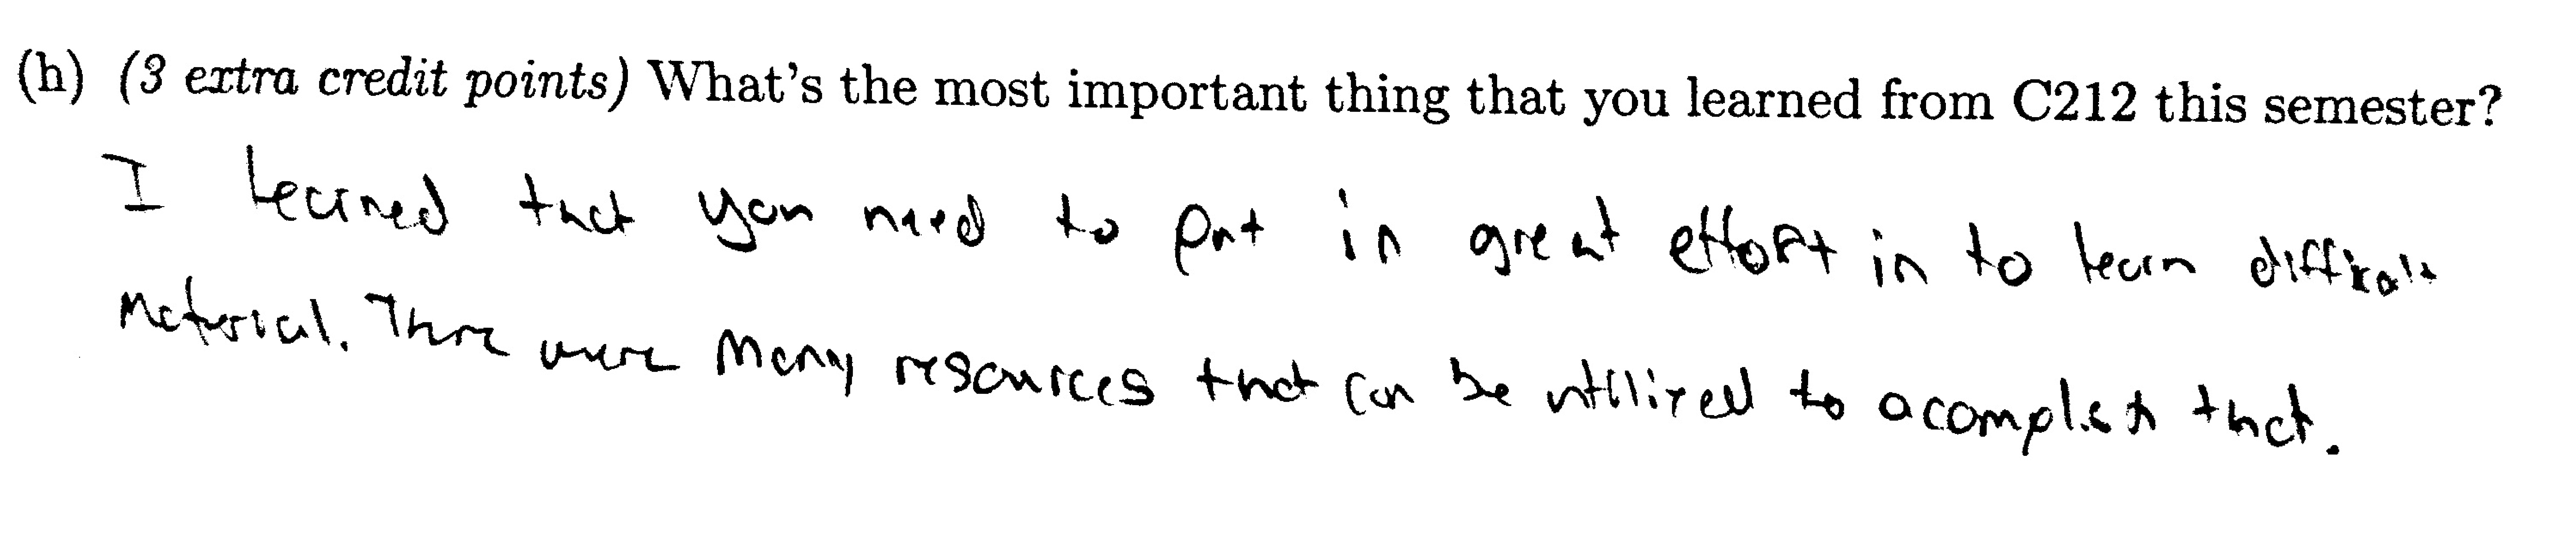 (h) (3 extra credit points) What's the most important thing that you learned from C212 this semester?
I learned that you need to put in great effort in to learn difficult
material. There were many resources that can be utilized to acomplish that.